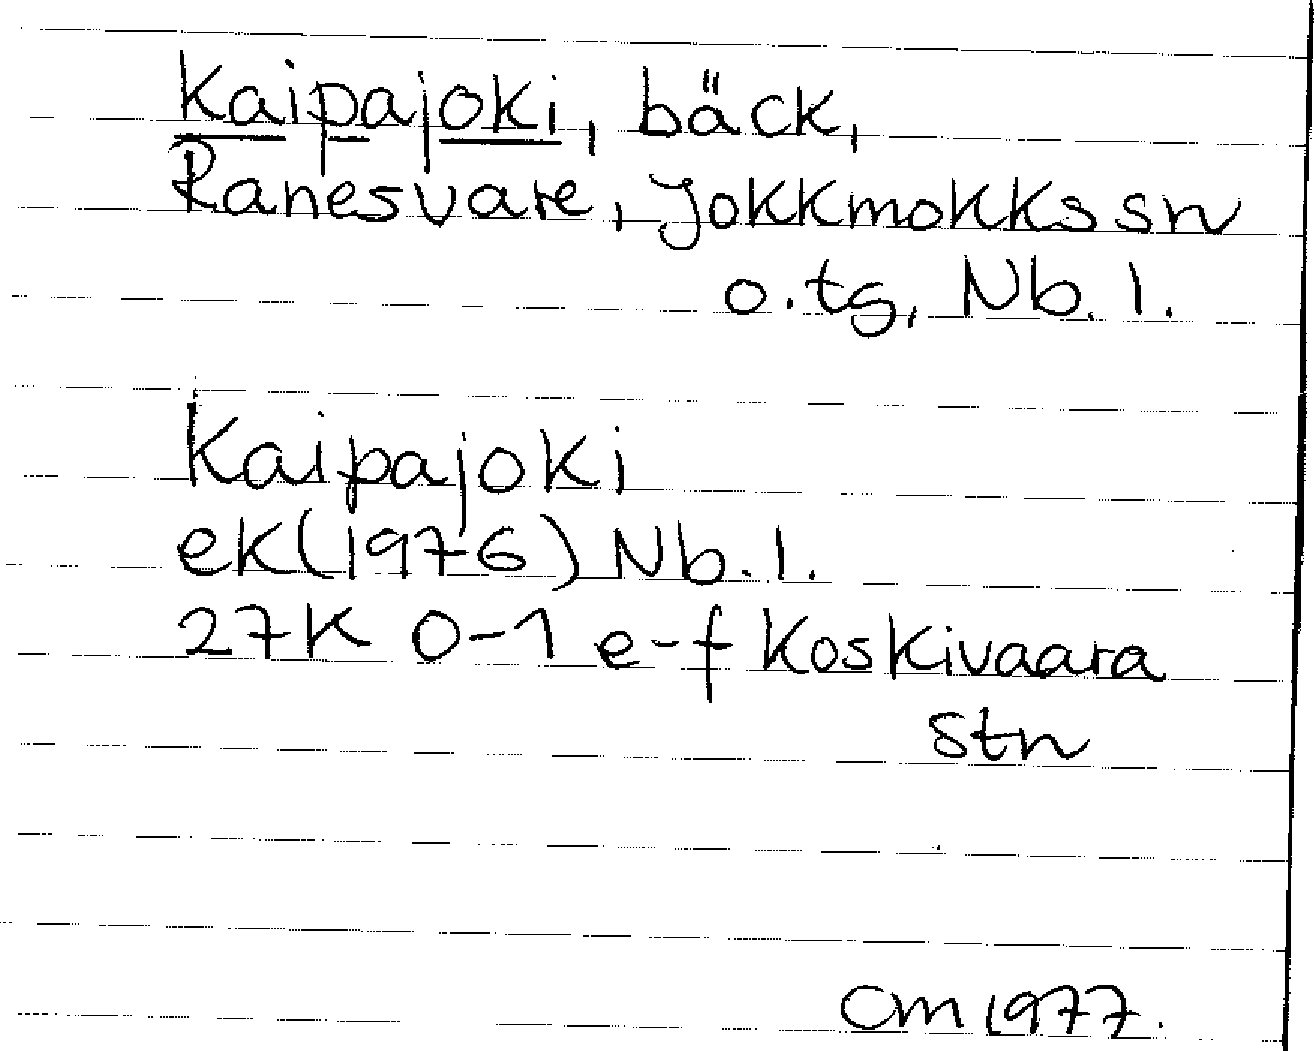 Kaipajoki, bäck,
Ranesvare, Jokkmokks sn
o. tg, Nb. l.
Kaipajoki
ek (1976) Nb. l.
27K 0-1 e-f Koskivaara
stn
OM 1977.